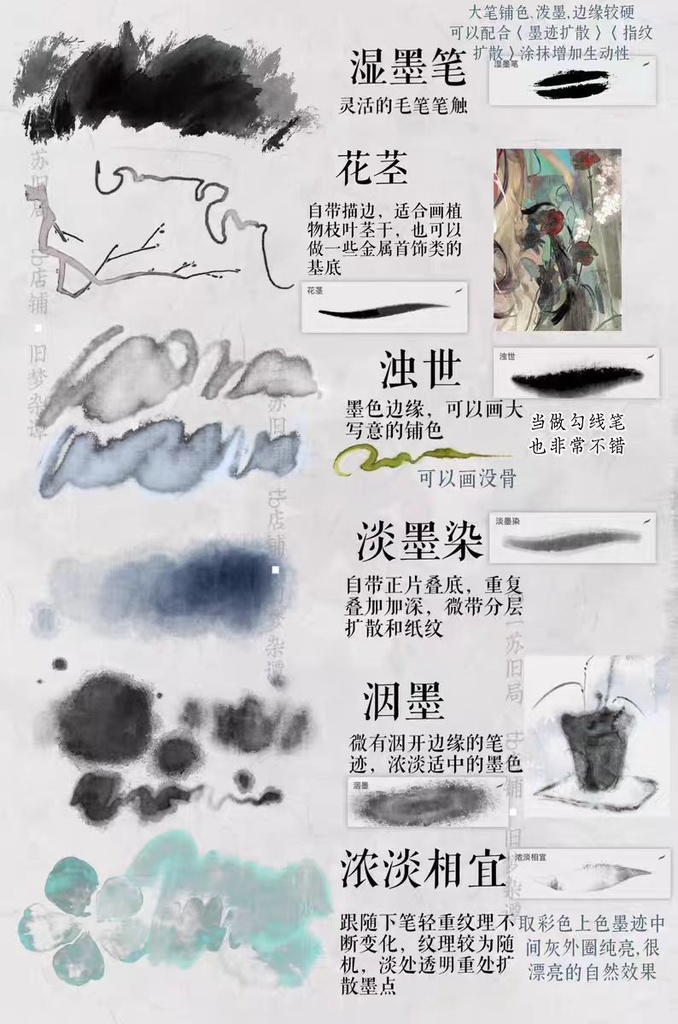 大笔铺色、泼墨,边缘较硬
可以配合〈墨迹扩散〉〈指纹
扩散〉涂抹增加生动性
湿墨笔
灵活的毛笔笔触
湿墨笔
花茎
自带描边，适合画植
物枝叶茎干，也可以
做一些金属首饰类的
基底
花茎
浊世
浊世
墨色边缘，可以画大
写意的铺色
当做勾线笔
也非常不错
可以画没骨
淡墨染
淡墨染
自带正片叠底，重复
叠加加深，微带分层
扩散和纸纹
洇墨
微有洇开边缘的笔
迹，浓淡适中的墨色
洇墨
浓淡相宜
浓淡相宜
跟随下笔轻重纹理不
断变化，纹理较为随
机，淡处透明重处扩
散墨点
取彩色上色墨迹中
间灰外圈纯亮,很
漂亮的自然效果